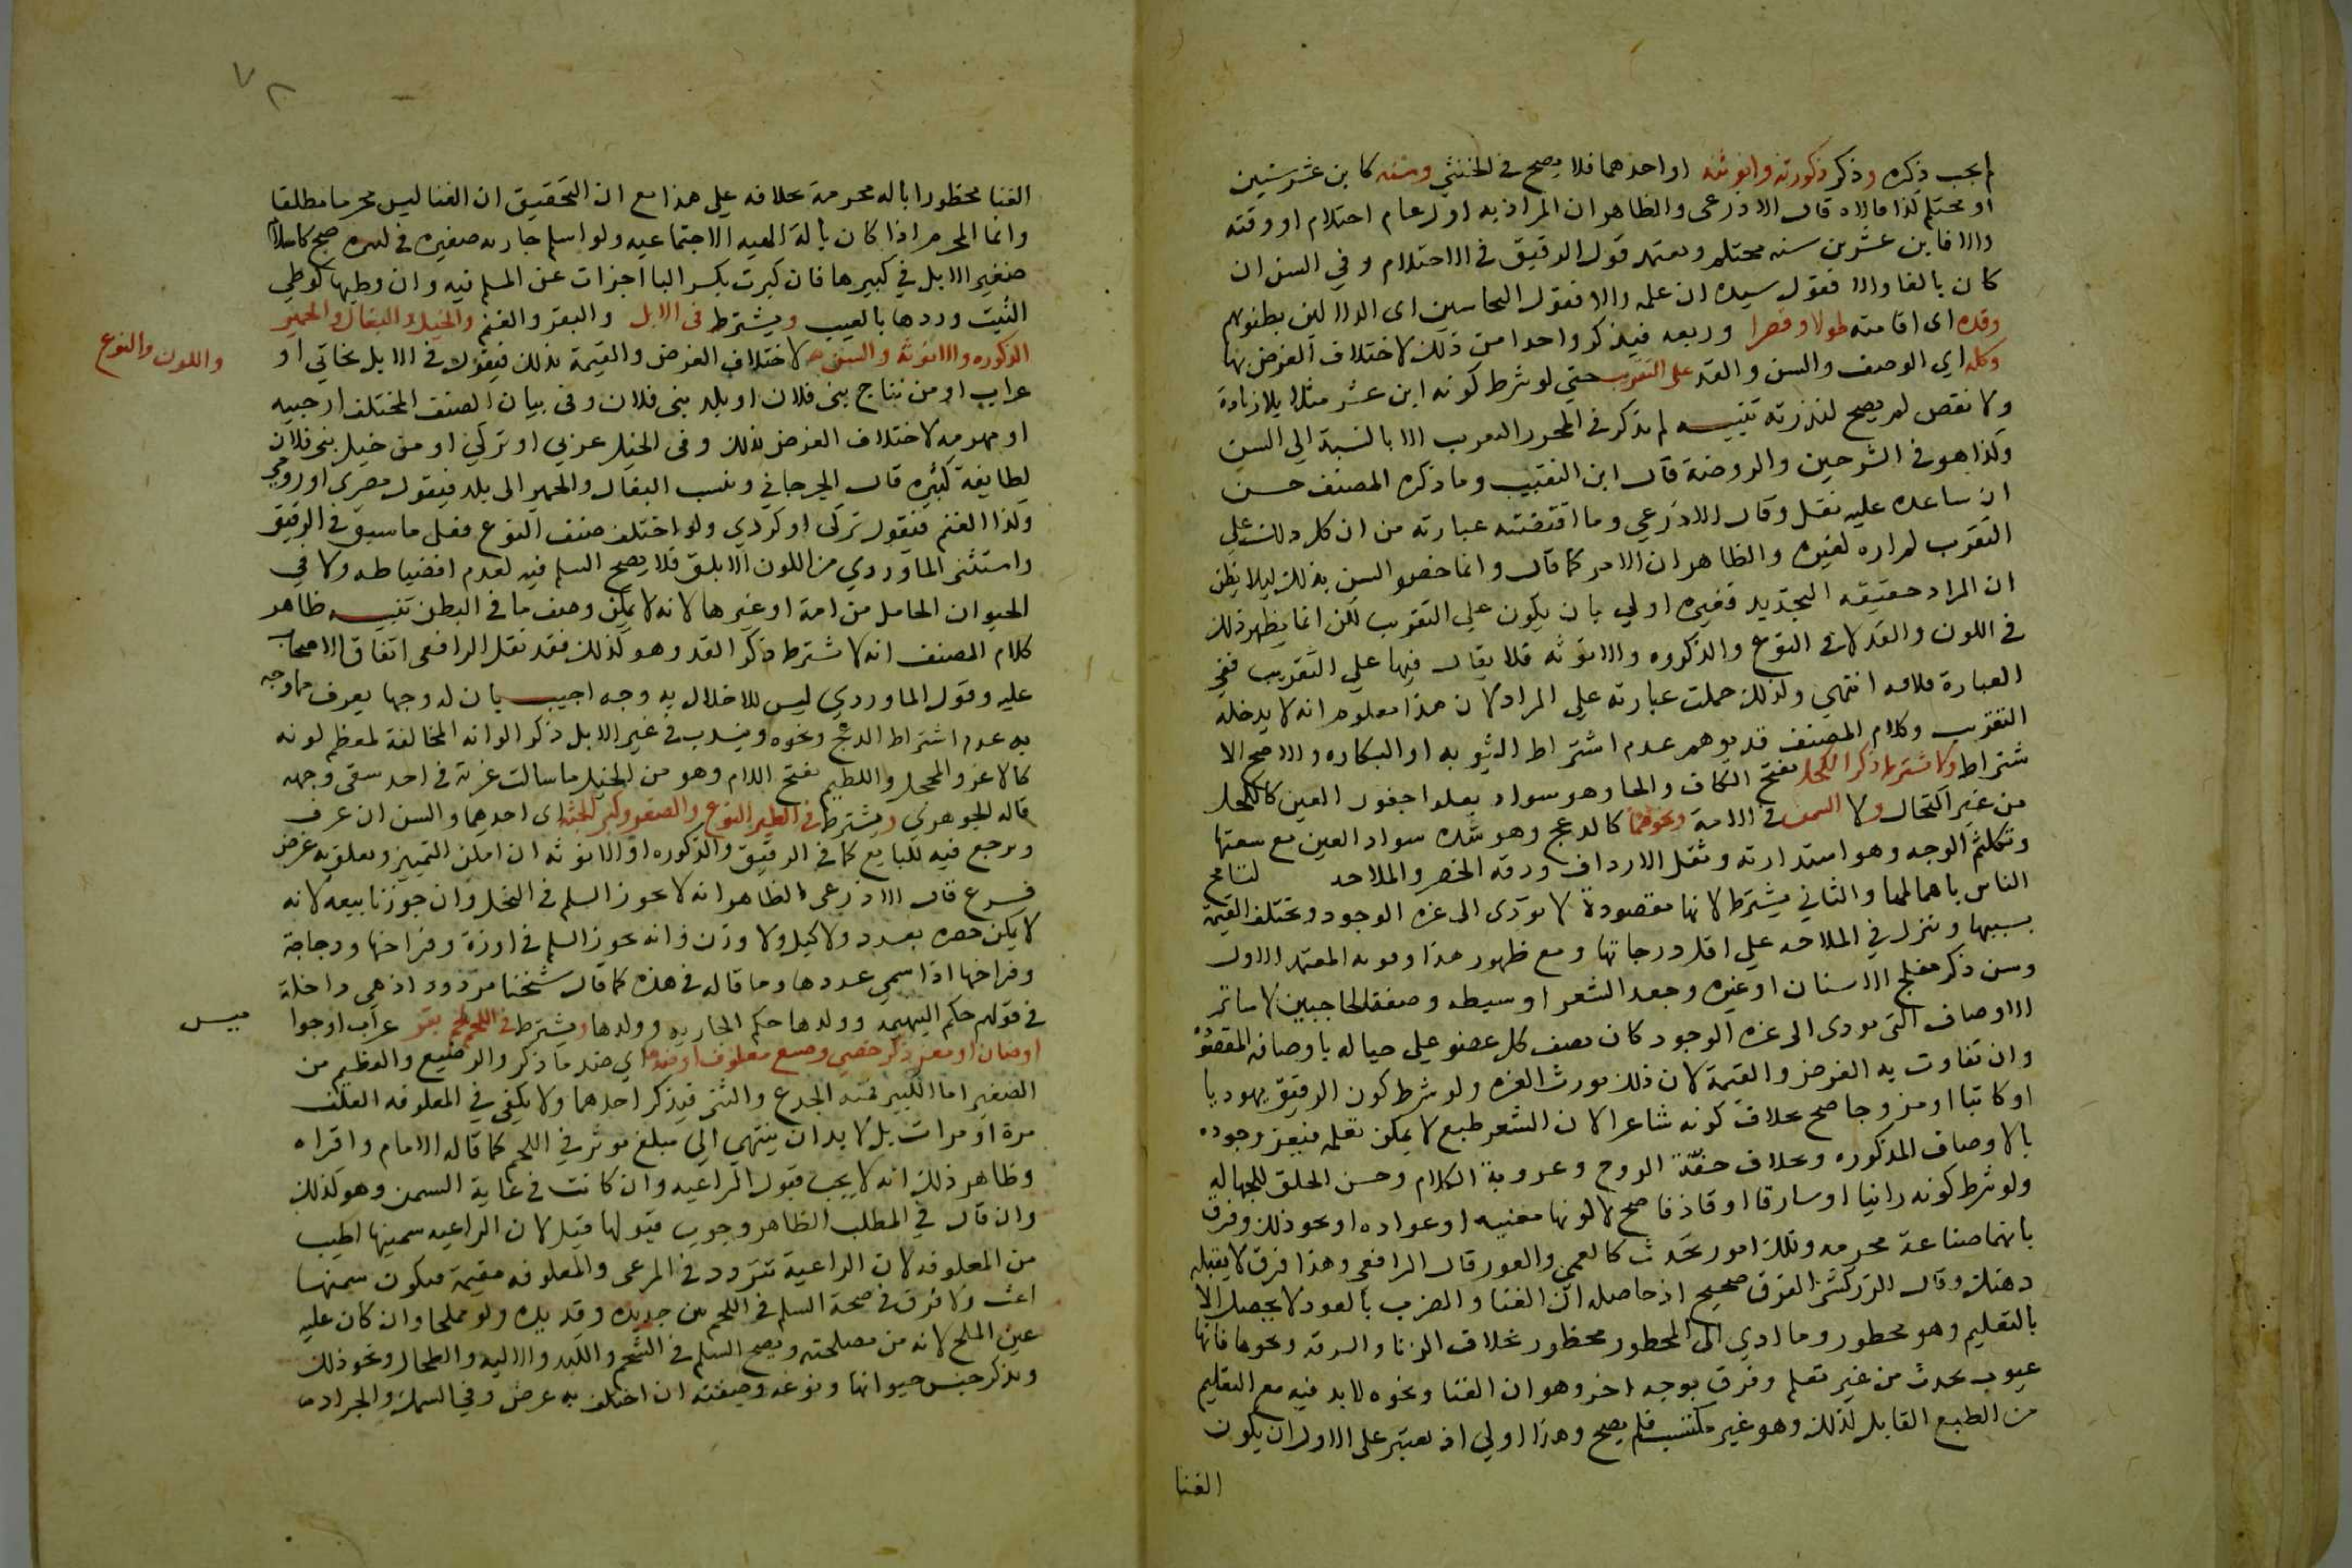 لم يجب ذكره وذكر ذكورته وانوثته او احدهما فلا يصح في الخنثي وسنه كابن عشر سنين
او محتلم كذا قالاه قال الاذرعي والظاهر ان المراد به اول عام احتلام او وقته
والا فابن عشرين سنه محتلم ويعتمد قول الرقيق في الاحتلام وفي السن ان
كان بالغا والا فقول سيده ان علمه والا فقول النخاسين اي الدلالين بظنونهم
وقده اي اقامته طولا وقصرا وربعه فيذكر واحدا من ذلك لاختلاف الغرض بها
وكله اي الوصف والسن والقد على التقريب حتي لو شرط كونه ابن عشر مثلا بلا زيادة
ولا نقص لم يصح لندرته تنبيه لم يذكر في المحرر التقريب الا بالنسبة الي السن
وكذا هو في الشرحين والروضة قال ابن النقيب وما ذكره المصنف حسن
ان ساعده عليه نقل وقال الاذرعي وما اقتضته عبارته من ان كل ذلك علي
التقريب لم اره لغيره والظاهر ان الامر كما قال وانما خصوا السن بذلك ليلا يظن
ان المراد حقيقه التحديد فغيره اولي بان يكون علي التقريب لكن انما يظهر ذلك
في اللون والقد لا في النوع والذكوره والانوثه فلا يقال فيها علي التقريب ففي
العبارة قلاقه انتهي ولذلك حملت عبارته علي المراد لان هذا معلوم انه لا يدخله
التقريب وكلام المصنف قد يوهم عدم اشتراط الثيوبه او البكاره والاصح الا
شتراط ولا يشترط ذكر الكحل بفتح الكاف والحا وهو سواد يعلوا جفون العين كالكحل
من غير اكتحال ولا السمن في الامة ونحوهما كالدعج وهو شده سواد العين مع سعتها
وتكلثم الوجه وهو استدارته وثقل الارداف ودقه الخصر والملاحه لتسامح
الناس باهمالهما والثاني يشترط لانها مقصودة لا يودي الى عزه الوجود وتختلف القيمة
بسببها وينزل في الملاحه علي اقل درجاتها ومع ظهور هذا وقوته المعتمد الاول
وسن ذكر مفلج الاسنان او غيره وجعد الشعر او سبطه وصفة الحاجبين لا سائر
الاوصاف التي تودي الى عزه الوجود كان يصف كل عضو علي حياله باوصافه المقصوده
وان تفاوت به الغرض والقيمة لان ذلك يورث العزه ولو شرط كون الرقيق يهوديا
او كاتبا او مزوجا صح بخلاف كونه شاعرا لان الشعر طبع لا يمكن تعلمه فيعز وجوده
بالاوصاف المذكوره وبخلاف خفة الروح وعذوبة الكلام وحسن الخلق للجهاله
ولو شرط كونه زانيا او سارقا او قاذفا صح لا كونها مغنيه او عواده او نحو ذلك وفرق
بانهما صناعة محرمه وتلك امور تحدث كالعمي والعور قال الرافعي وهذا فرق لا يقبله
ذهنك وقال الزركشي الفرق صحيح اذ حاصله ان الغنا والضرب بالعود لا يحصل الا
بالتعليم وهو محظور وما ادي الى المحظور محظور بخلاف الزنا والسرقه ونحوها فانها
عيوب تحدث من غير تعلم وفرق بوجه اخر وهو ان الغنا ونحوه لا بد فيه مع التعليم
من الطبع القابل لذلك وهو غير مكتسب فلم يصح وهذا اولي اذ يعتبر على الاول ان يكون
الغنا
٧٢
الغنا محظورا بالة محرمة بخلافه علي هذا مع ان التحقيق ان الغنا ليس محرما مطلقا
وانما المحرم اذا كان بالة الهيه الاجتماعيه ولو اسلم جاريه صغيره في كبيره صح كاسلام
صغير الابل في كبيرها فان كبرت بكسر البا اجزات عن المسلم فيه وان وطيها كوطي
الثيب وردها بالعيب ويشترط في الابل والبقر والغنم والخيل والبغال والحمير
الذكوره والانوثه والسن لاختلاف الغرض والقيمة بذلك فيقول في الابل بخاتي او
واللون والنوع
عراب او من نتاج بني فلان او بلد بني فلان وفي بيان الصنف المختلف ارحبيه
او مهريه لاختلاف الغرض بذلك وفي الخيل عربي او تركي او من خيل بني فلان
لطايفة كثيره قال الجرجاني وينسب البغال والحمير الى بلد فيقول مصري او رومي
وكذا الغنم فيقول تركي او كردي ولو اختلف صنف النوع فعلى ما سبق في الرقيق
واستثني الماوردي من اللون الابلق فلا يصح السلم فيه لعدم انضباطه ولا في
الحيوان الحامل من امة او غيرها لانه لا يمكن وصف ما في البطن تنبيه ظاهر
كلام المصنف انه لا يشترط ذكر القد وهو كذلك فقد نقل الرافعي اتفاق الاصحاب
عليه وقول الماوردي ليس للاخلال به وجه اجيب بان له وجها يعرف مما وجه
به عدم اشتراط الدعج ونحوه ويندب في غير الابل ذكر الوانه المخالفة لمعظم لونه
كالاغر والمحجل واللطيم بفتح اللام وهو من الخيل ما سالت غرته في احد شقي وجهه
قاله الجوهري ويشترط في الطير النوع والصغر وكبر الجثه اي احدهما والسن ان عرف
ويرجع فيه للبايع كما في الرقيق والذكوره او الانوثه ان امكن التمييز وتعلق به غرض
فرع قال الاذرعي الظاهر انه لا يجوز السلم في النحل وان جوزنا بيعه لانه
لا يمكن حصره بعدد ولا كيل ولا وزن وانه يجوز السلم في اوزة وفراخها ودجاجة
وفراخها اذا سمي عددها وما قاله في هذه كما قال شيخنا مردود اذ هي داخلة
في قولهم حكم البهيمه وولدها حكم الجاريه وولدها ويشترط في اللحم لحم بقر عراب او جوا
ميس
او ضان او معز ذكر خصي رضيع معلوف او ضدها اي ضد ما ذكر والرضيع والفطيم من
الصغير اما الكبير فمنه الجذع والثني فيذكر احدهما ولا يكفي في المعلوفه العلف
مرة او مرات بل لا بد ان ينتهي الي مبلغ يوثر في اللحم كما قاله الامام واقراه
وظاهر ذلك انه لا يجب قبول الراعيه وان كانت في غاية السمن وهو كذلك
وان قال في المطلب الظاهر وجوب قبولها قيل لان الراعيه سمينها اطيب
من المعلوفه لان الراعية تتردد في المرعى والمعلوفه مقيمة فيكون سمنها
اغث ولا فرق في صحة السلم في اللحم بين جديده وقديده ولو مملحا وان كان عليه
عين الملح لانه من مصلحته ويصح السلم في الشحم والكبد والاليه والطحال ونحو ذلك
ويذكر جنس حيوانها ونوعه وصفته ان اختلف به غرض وفي السمك والجراد